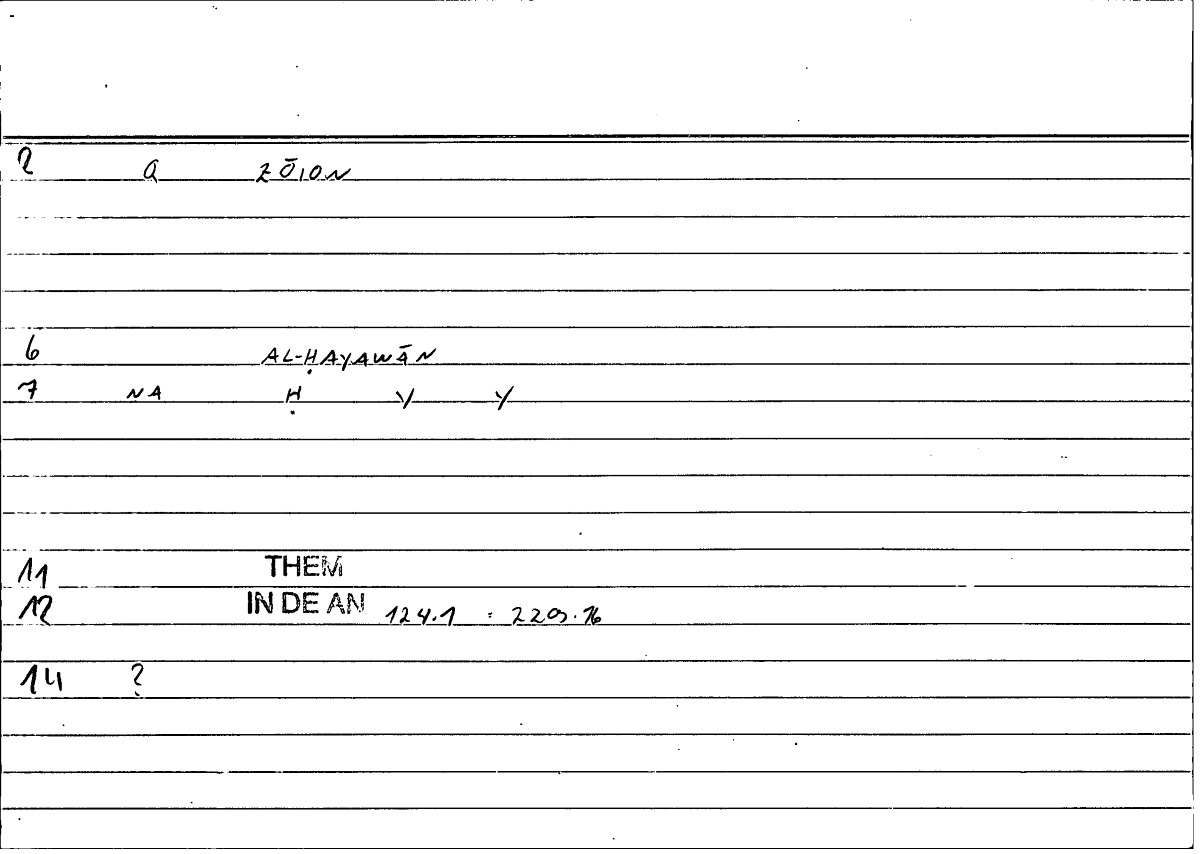 2 Q ZŌION
6 AL-ḤAYAWĀN
7 NA Ḥ Y Y
11 THEM
12 IN DE AN 124.1 = 229.16
14 ?